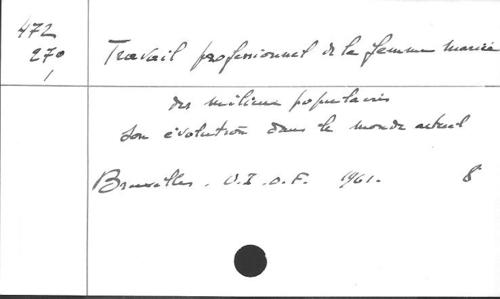 472
270
1
Travail professionnel de la femme mariée
des milieux populaires
Son évolution dans le monde actuel
Bruxelles. U.I.O.F. 1961. 8